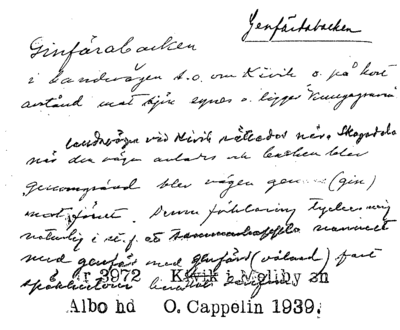 Genfärdabacken
Ginfärabacken
i landsvägen s.o. om Kivik o. på kort
avstånd mot sjön synes o. ligger Kungagraven
landsvägen vid Kivik
när den vägen anlades och backen blev
genomgrävd blev vägen genare (gin)
mot förut. Denna förklaring tyckes mig
naturlig i st. f. att sammankoppla namnet
med genfär med genfärd (vålnad) fast
Ar 3972 Kivik i Mellby sn
Albo hd O. Cappelin 1939.